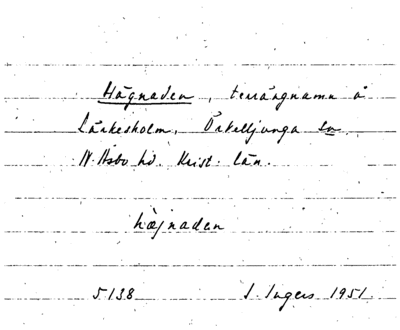 Hägnaden, terrängnamn å
Lärkesholm, Örkelljunga sn
N. Åsbo hd. Krist. län.
hæjnaden
5138 I. Ingers 1951.